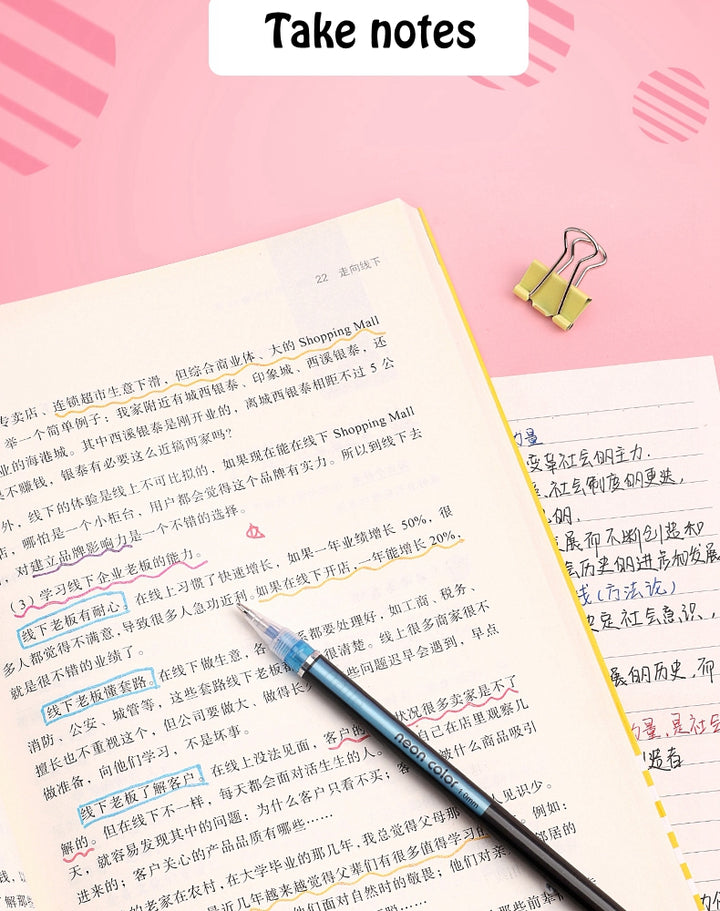 Take notes
22 走向线下
专卖店、连锁超市生意下滑，但综合商业体、大的 Shopping Mall
举一个简单例子：我家附近有城西银泰、印象城、西溪银泰，还
业的海港城。其中西溪银泰是刚开业的，离城西银泰相距不过 5 公
不赚钱，银泰有必要这么近搞两家吗？
外，线下的体验是线上不可比拟的，如果现在能在线下 Shopping Mall
店，哪怕是一个小柜台，用户都会觉得这个品牌有实力。所以到线下去
，对建立品牌影响力是一个不错的选择。
（3）学习线下企业老板的能力。
线下老板有耐心。在线上习惯了快速增长，如果一年业绩增长 50%，很
多人都觉得不满意，导致很多人急功近利。如果在线下开店，一年能增长 20%，
就是很不错的业绩了。
线下老板懂套路。在线下做生意，各 系都要处理好，如工商、税务、
消防、公安、城管等，这些套路线下老板 很清楚。线上很多商家很不
擅长也不重视这个，但公司要做大、做得长 些问题迟早会遇到，早点
做准备，向他们学习，不是坏事。
线下老板了解客户。在线上没法见面，客户的 状况很多卖家是不了
解的。但在线下不一样，每天都会面对活生生的人。 自己在店里观察几
天，就容易发现其中的问题：为什么客户只看不买；客 被什么商品吸引
进来的；客户关心的产品品质有哪些……
的老家在农村，在大学毕业的那几年，我总觉得父母那 人见识少。
是近几年越来越觉得父辈们有很多值得学习的 例如：
他们面对自然时的敬畏；他们对亲 邻居的
那些前辈
neon color 1.0mm
力量
变革社会的主力.
社会制度的更迭，
的.
展而不断创造和
会历史的进步和发展
线(方法论)
决定社会意识，
展的历史，而
力量，是社会
造者